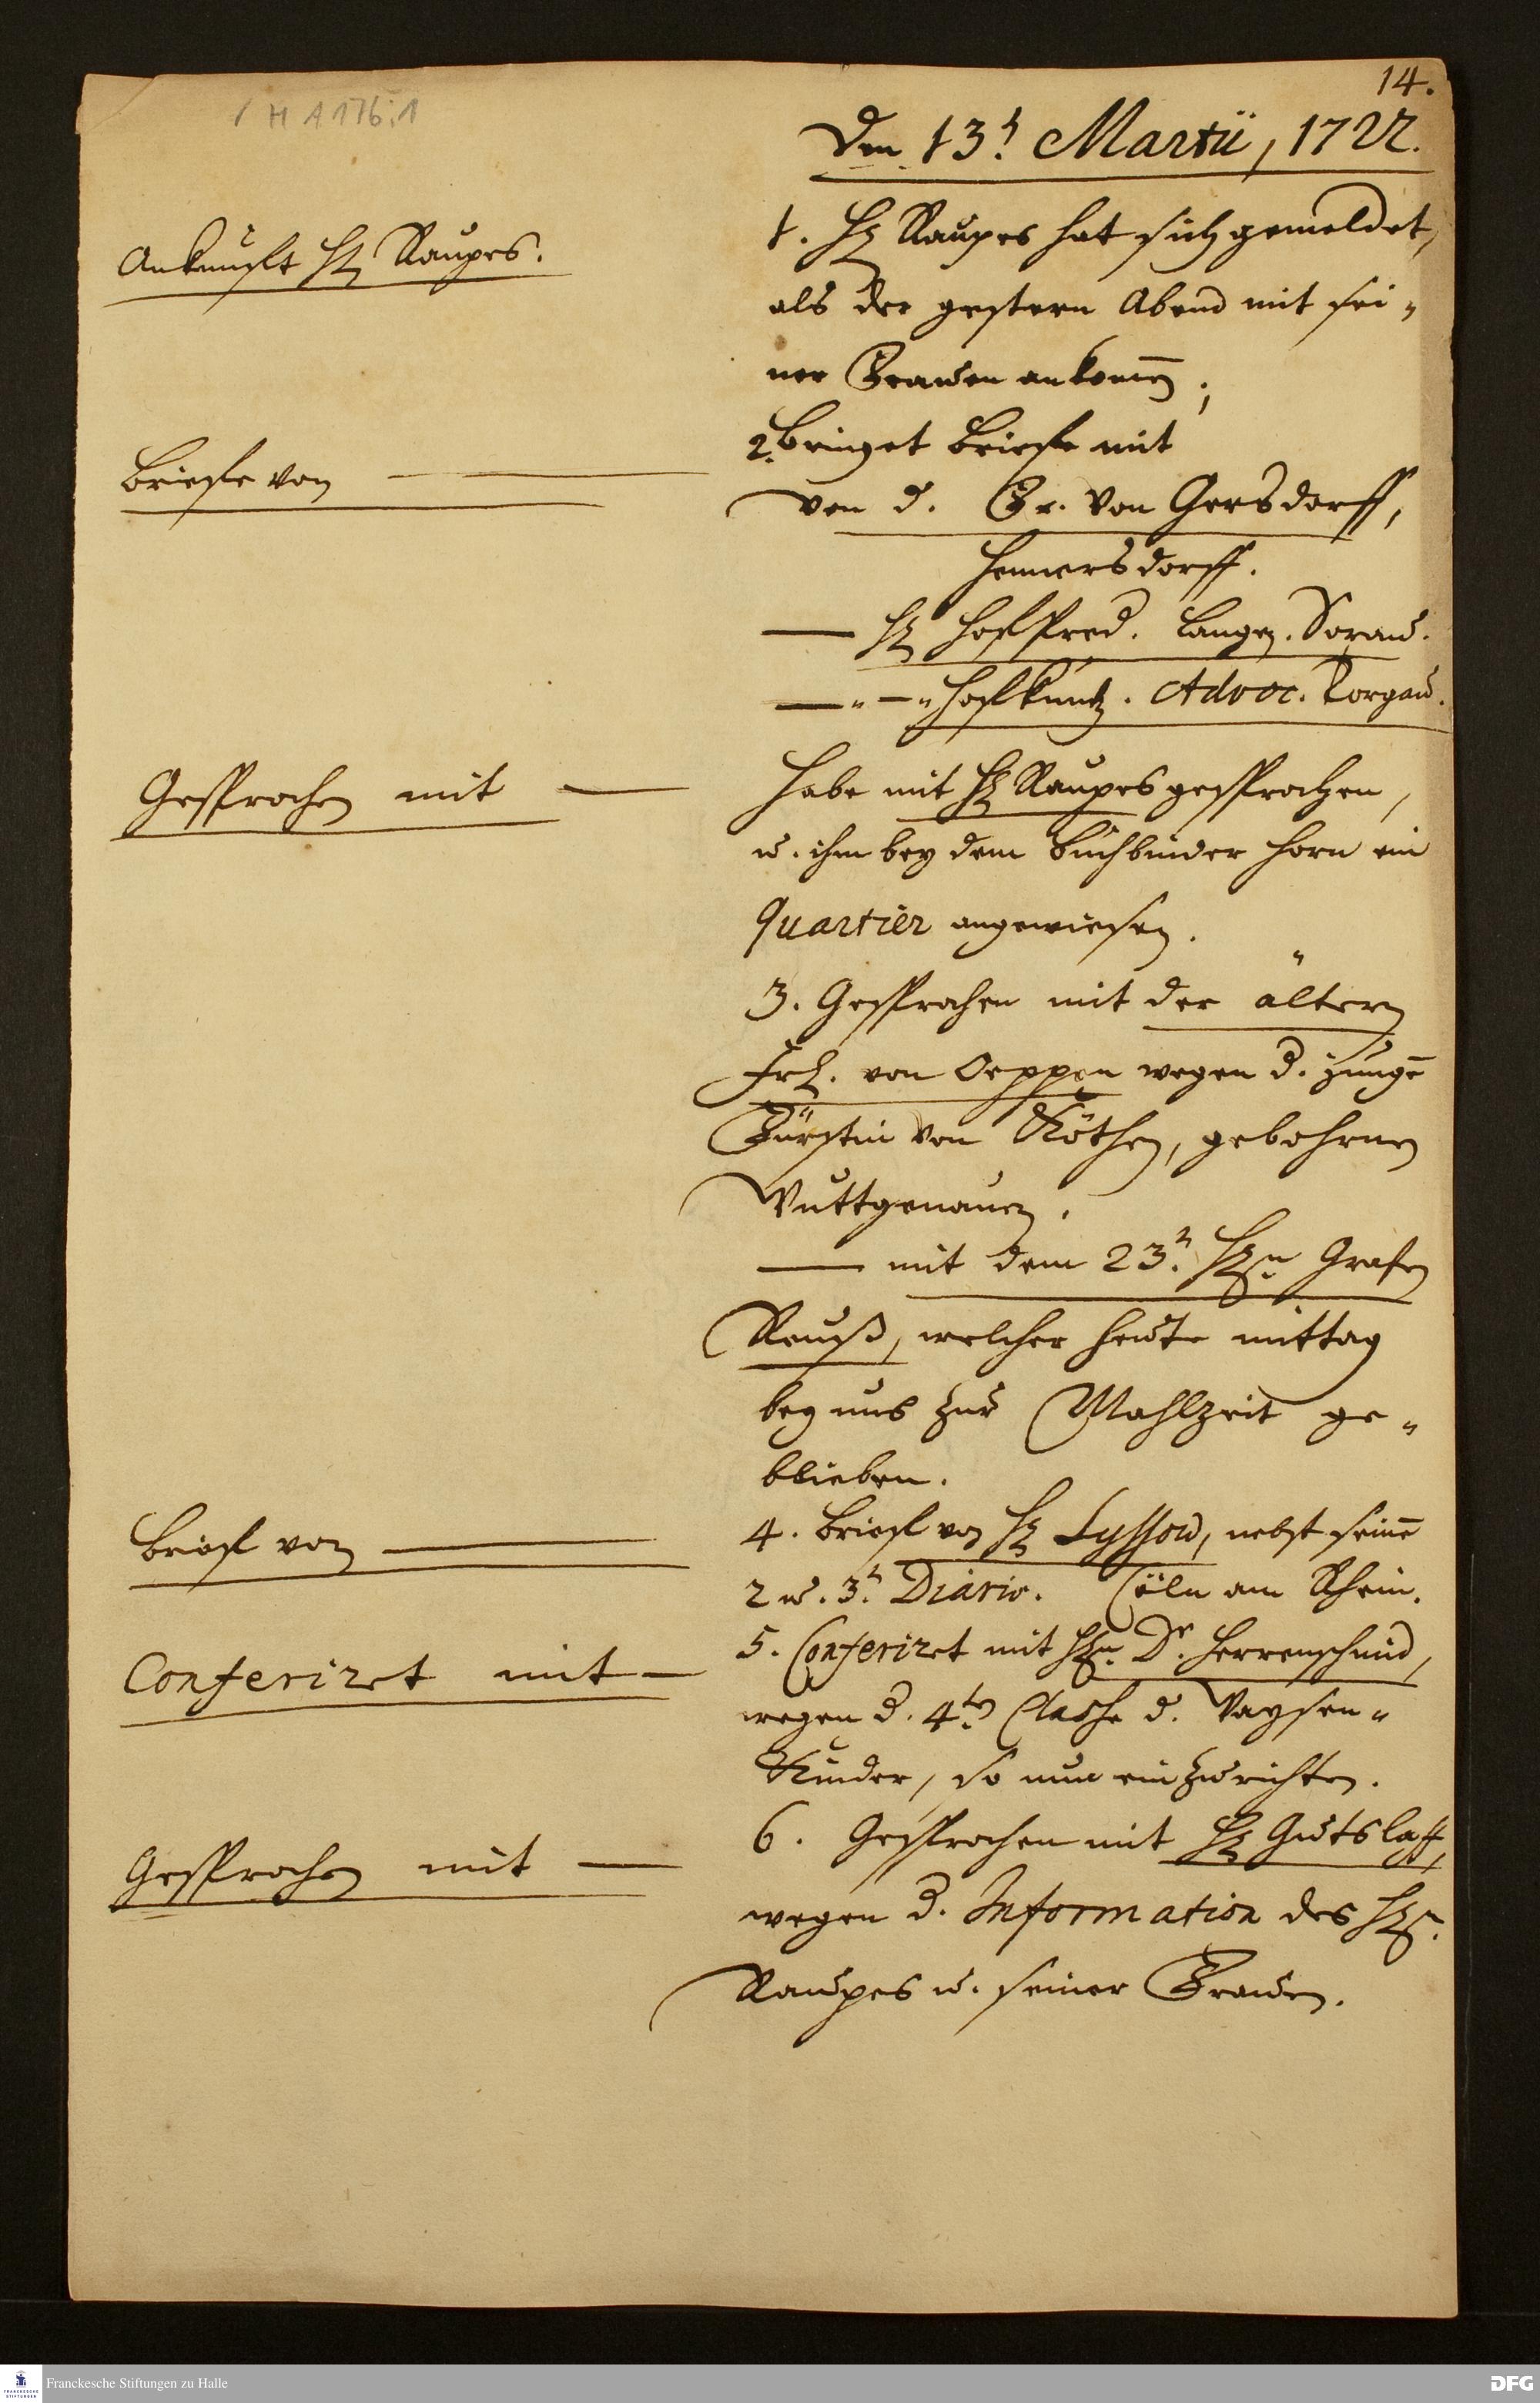 14.
H A 176:1
Den 13.t Martii, 1722.
Ankunfft H. Raupes.
1. H. Raupes hat sich gemeldet,
als der gestern Abend mit sei-
ner Frauen ankomen;
2. bringet Briefe mit
Briefe von
von d. Fr. von Gersdorff,
Hennersdorff.
H. HoffPred. Langen. Sorau.
Hoffkuntz. Advoc. Torgau.
Gesprochen mit
Habe mit H. Raupes gesprochen,
u. ihm bey dem Buchbinder Horn ein
Quartier angewiesen.
3. Gesprochen mit der ältern
Frl. von Oeppen wegen d.
Fürstin von Köthen, gebohrnen
Wuttgenauen.
mit dem 23.t Hrn. Grafen
Reuß, welcher heute mittag
bey uns zur Mahlzeit ge-
blieben.
Brief von
4. Brief von H. Lyssow, nebst seine
2 u. 3.t Diario. Cöln am Rhein.
Conferiret mit
5. Conferiret mit Hrn. Dr. Herrenschmid,
wegen d. 4ten Classe d. Waysen-
Kinder, so nun einzurichten.
Gesprochen mit
6. Gesprochen mit H. Gutslaff,
wegen d. Information des Hrn.
Raupes u. seiner Frauen.
Franckesche Stiftungen zu Halle
DFG